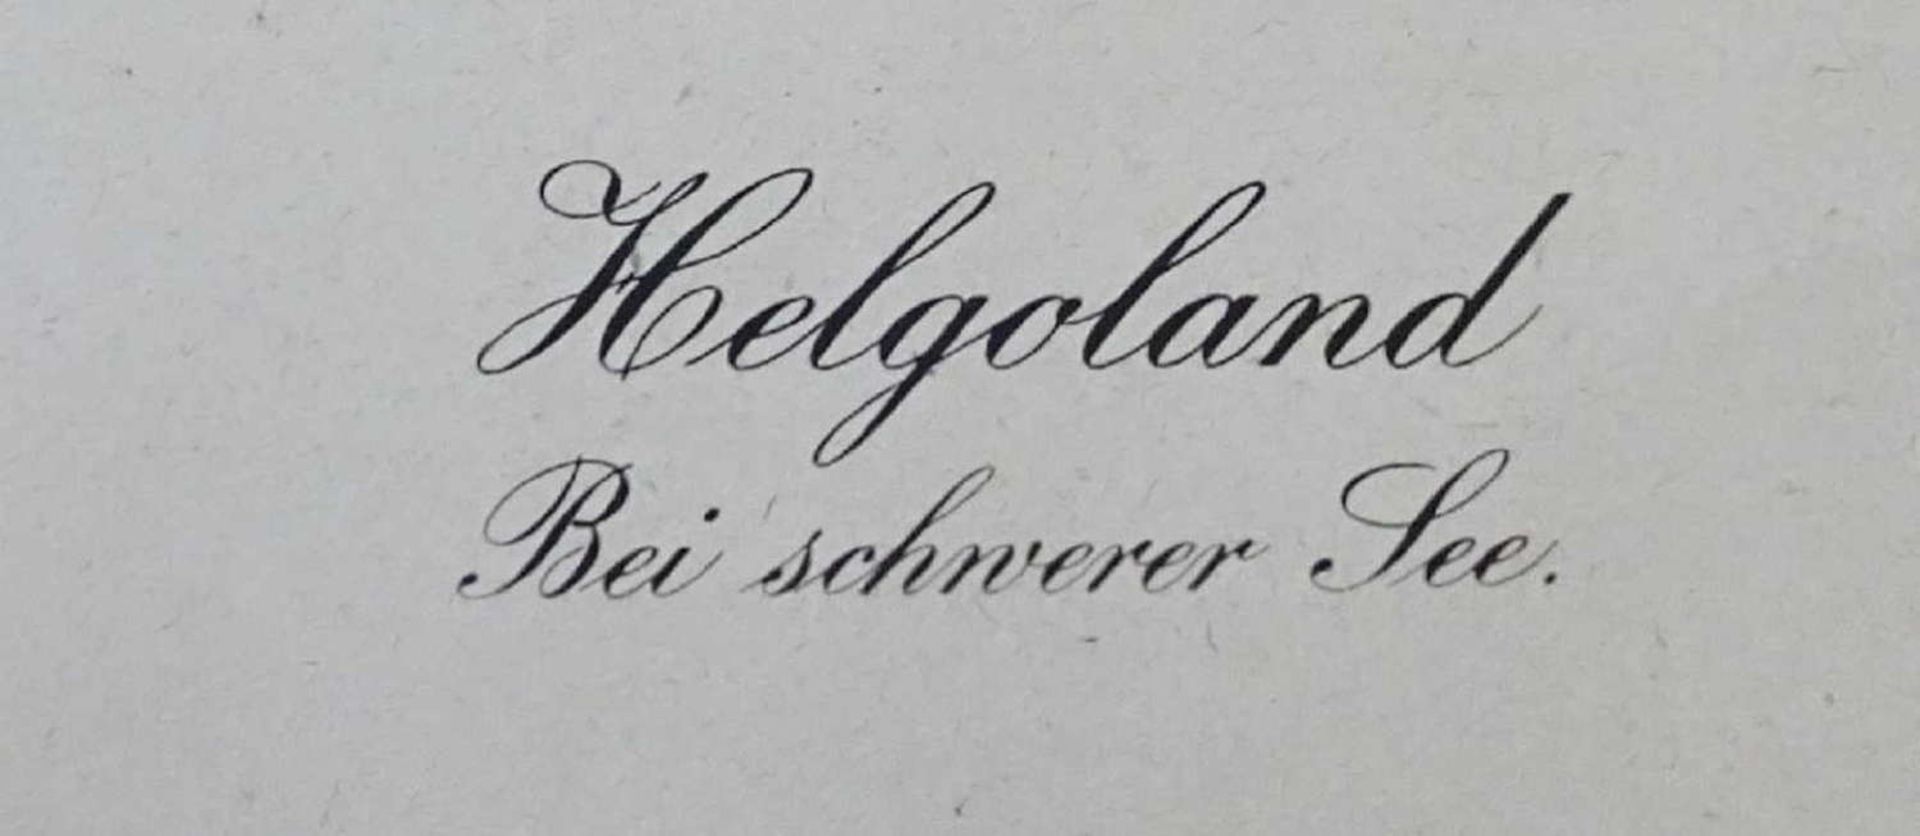 Helgoland
Bei schwerer See.